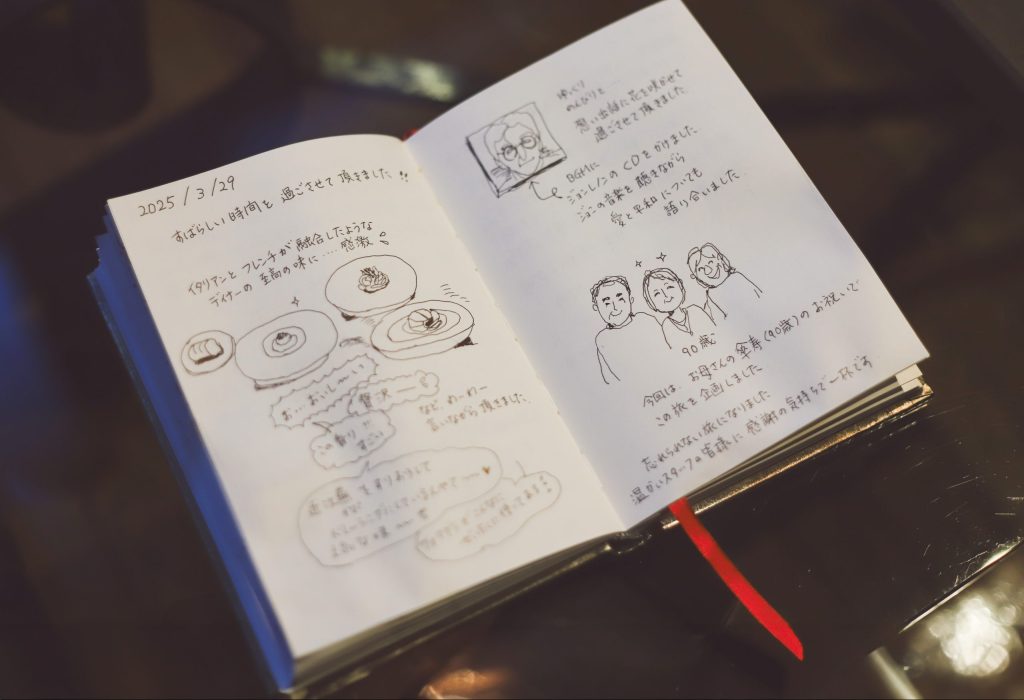 2025 / 3 / 29
すばらしい時間を過ごさせて頂きました!!
イタリアンとフレンチが融合したような
ディナーの至高の味に....感激
お...おいしーい
贅沢
この香り!!
すごい
など、わーわー
言いながら頂きました。
ゆっくり
のんびりと...
思い出話に花を咲かせて
過ごさせて頂きました
BGMに
ジョンレノンのCDをかけました
ジョンの音楽を聴きながら
愛と平和についても
語り合いました
90歳
今回は、お母さんの傘寿(90歳)のお祝いで
この旅を企画しました
忘れられない旅になりました
温かいスタッフの皆様に感謝の気持ちで一杯です